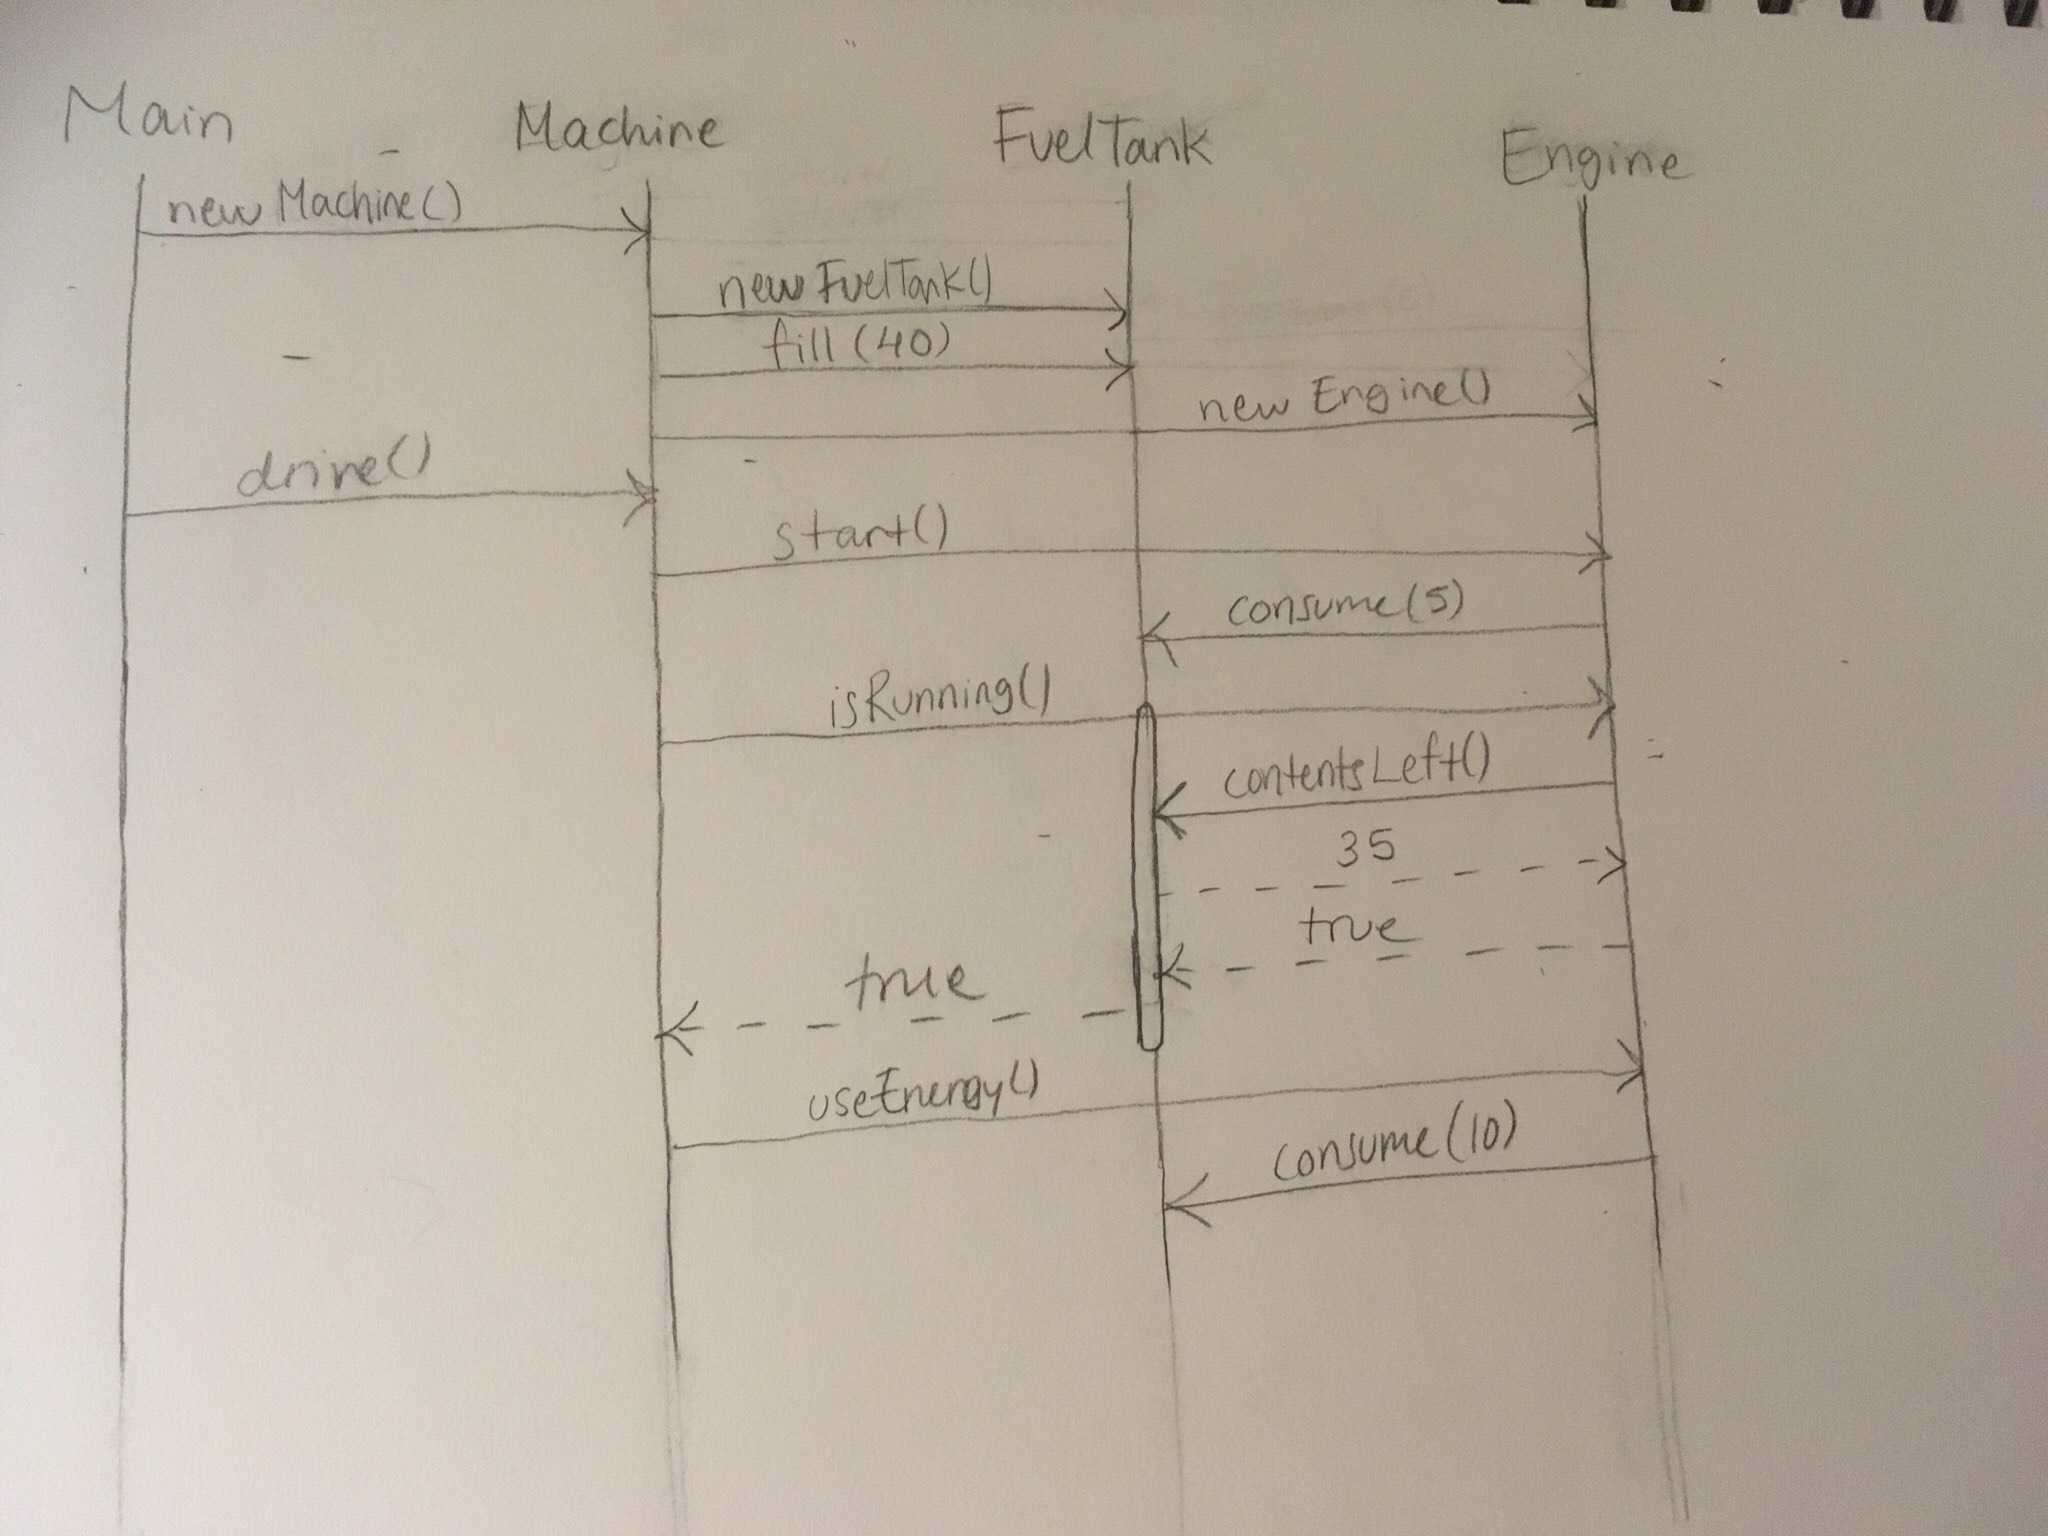 Main
Machine
FuelTank
Engine
new Machine()
new FuelTank()
fill (40)
new Engine()
drive()
start()
consume(5)
isRunning()
contentsLeft()
35
true
true
useEnergy()
consume(10)